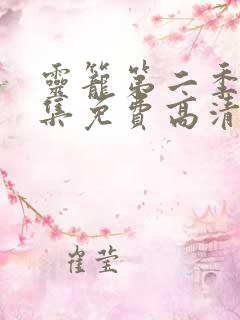 靈籠第二季
集免費高清
崔莹